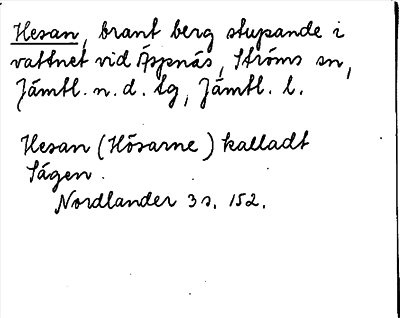 Hesan, brant berg stupande i
vattnet vid Äspnäs, Ströms sn,
Jämtl. n. d. sg, Jämtl. l.
Hesan (Hösarne) kalladt
Sägen.
Nordlander 3 s. 152.